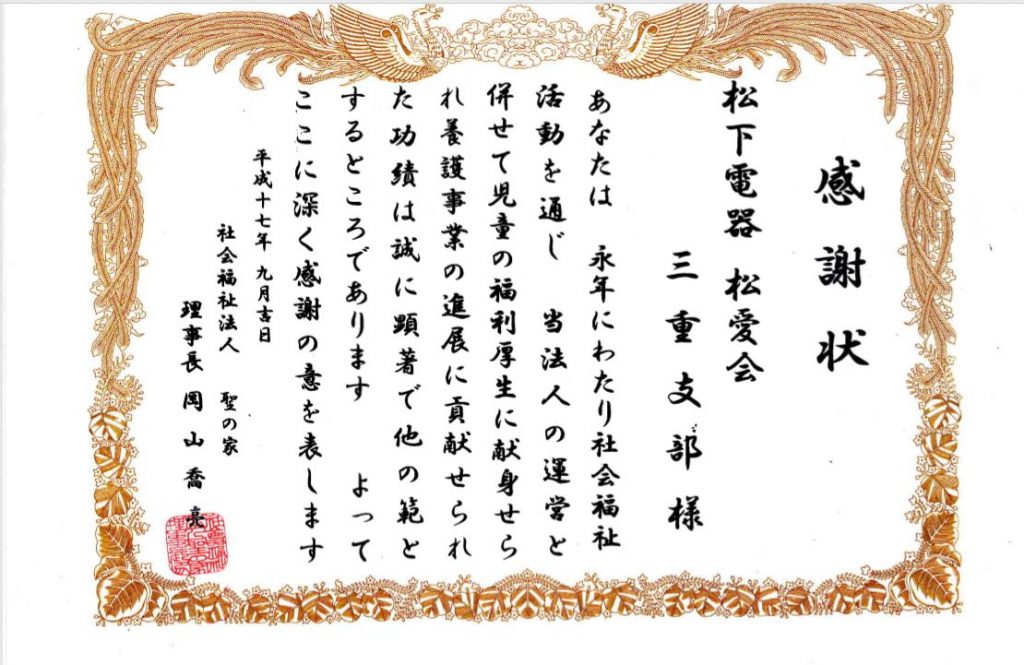 感謝状
松下電器 松愛会
三重支部様
あなたは 永年にわたり社会福祉
活動を通じ 当法人の運営と
併せて児童の福利厚生に献身せら
れ養護事業の進展に貢献せられ
た功績は誠に顕著で他の範と
するところであります よって
ここに深く感謝の意を表します
平成十七年 九月吉日
社会福祉法人 聖の家
理事長 岡山喬亮